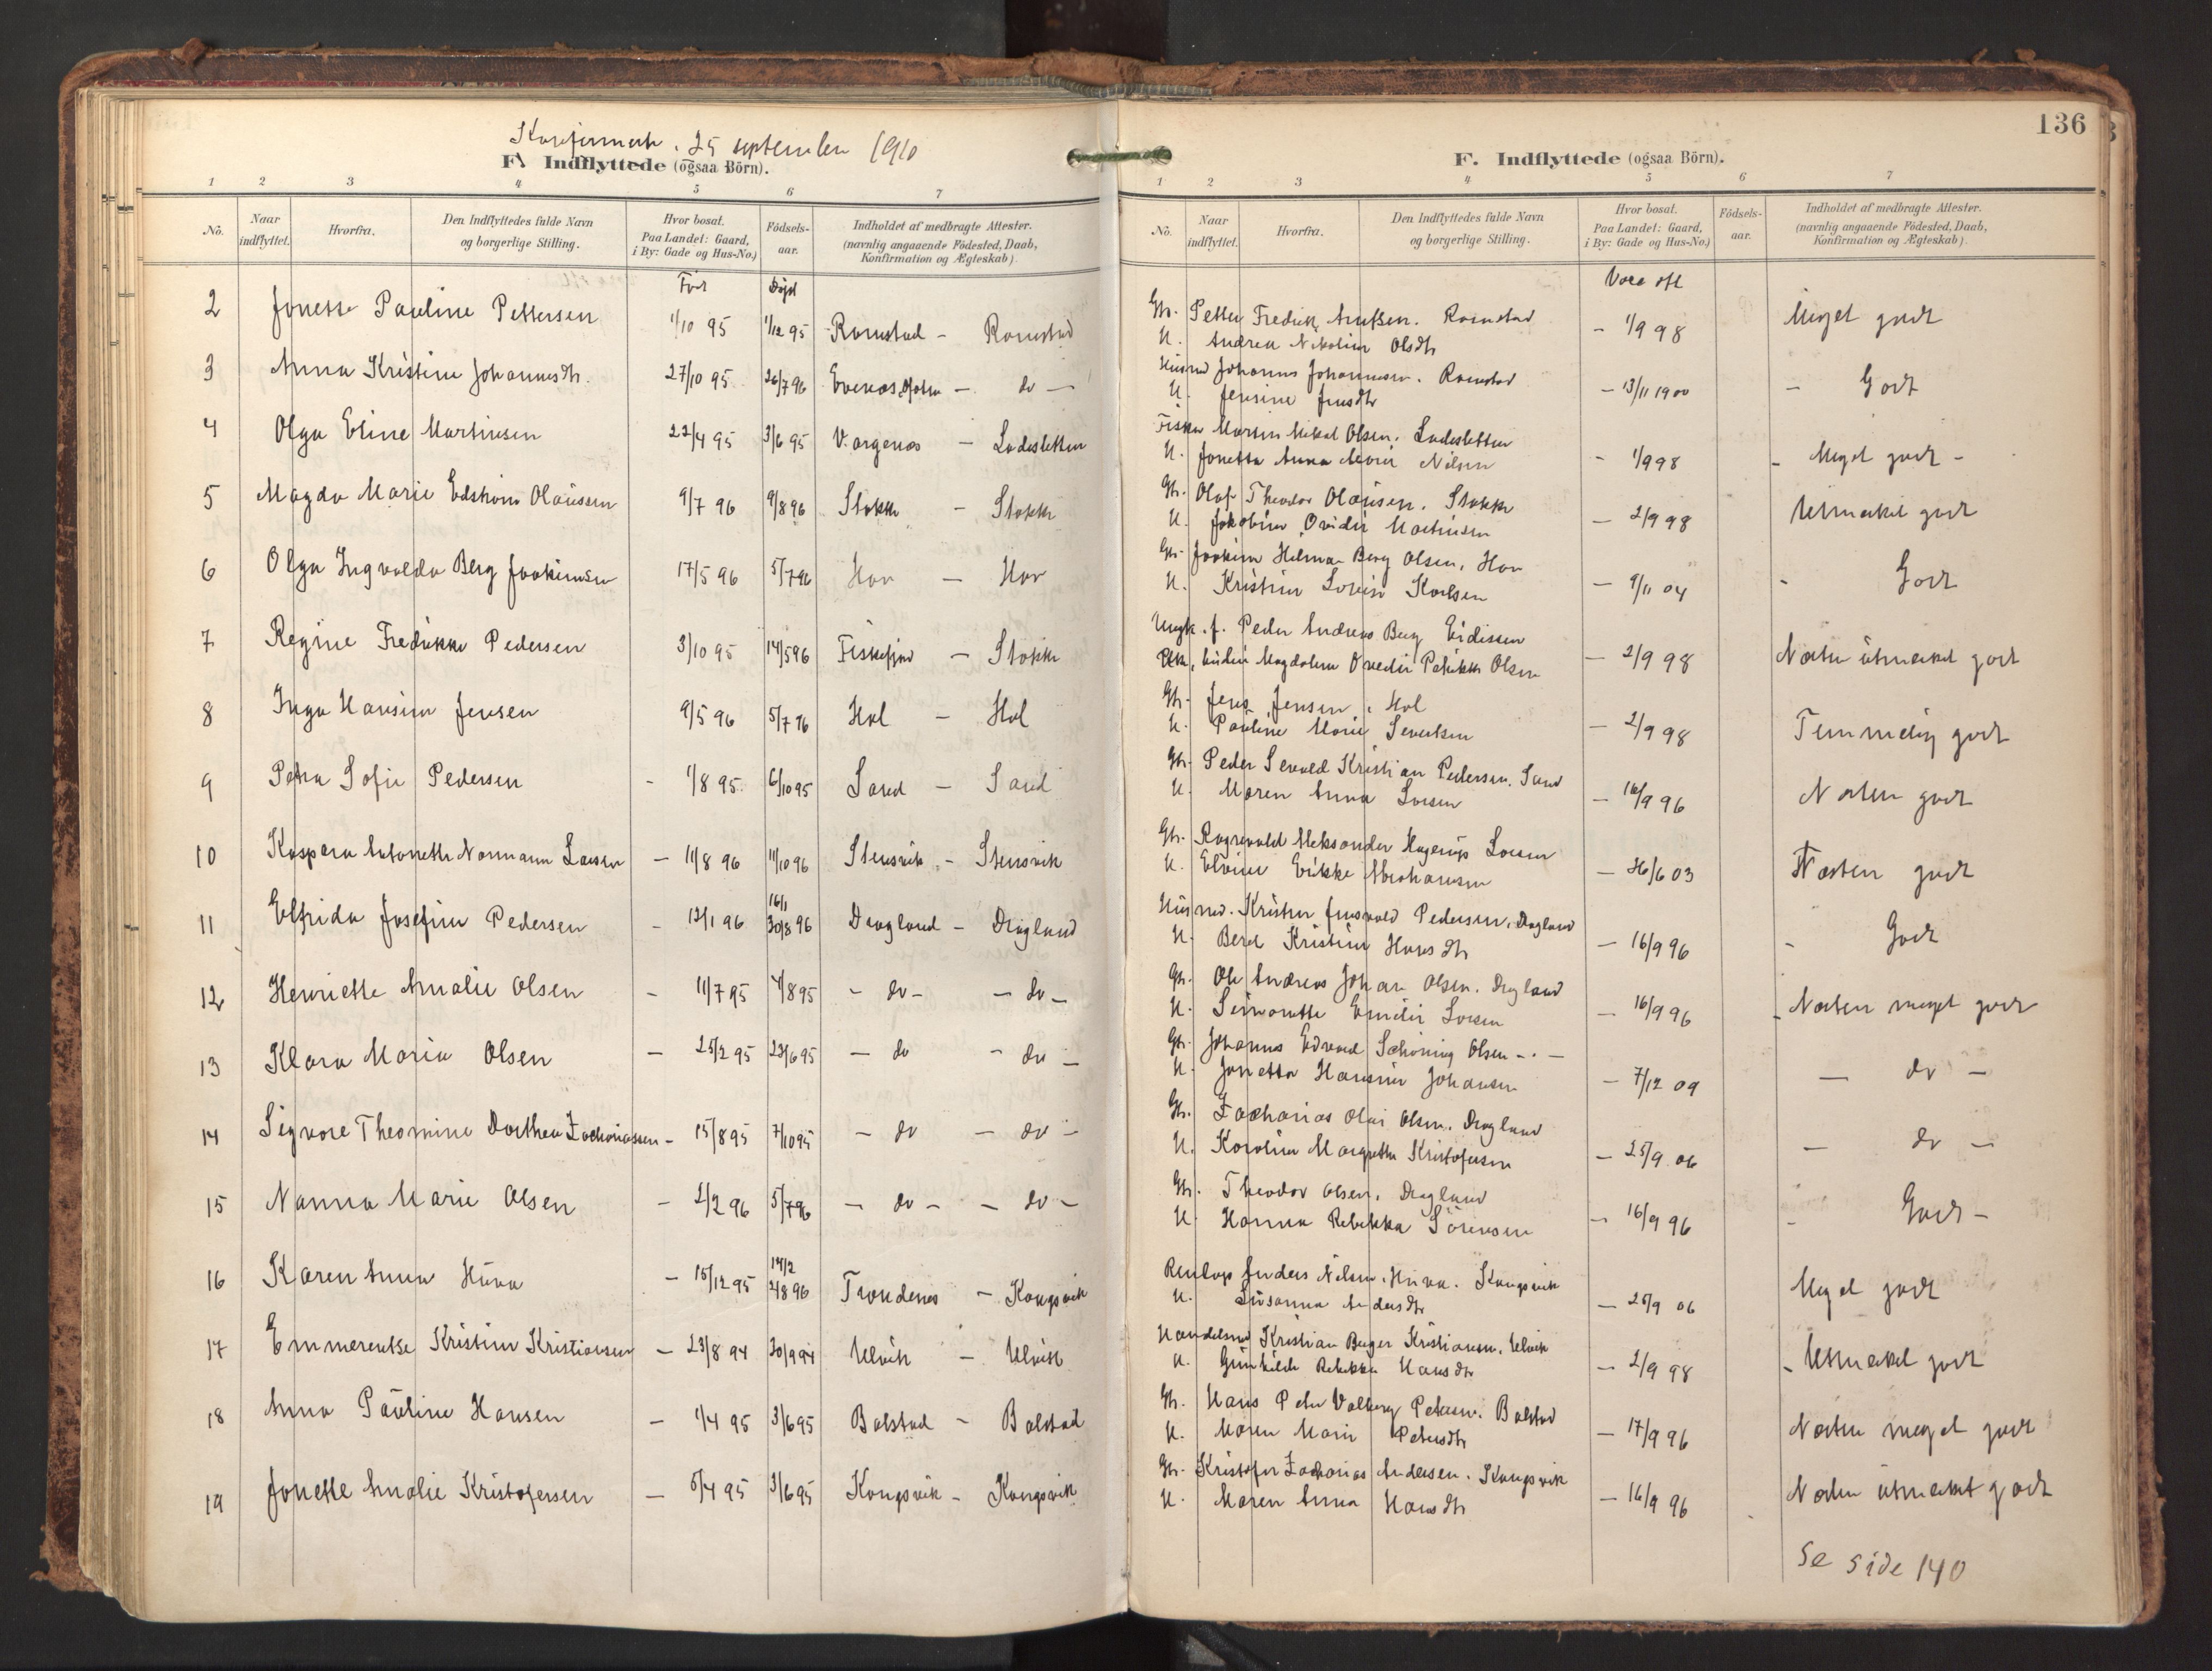 Konfirmert. 25 september 1910
F. Indflyttede (ogsaa Börn).
1 2 3 4 5 6 7
No. Naar indflyttet. Hvorfra. Den Indflyttedes fulde Navn og borgerlige Stilling. Hvor bosat. Paa Landet: Gaard, i By: Gade og Hus-No.) Födsels-aar. Indholdet af medbragte Attester. (navnlig angaaende Födested, Daab, Konfirmation og Ægteskab).
Föd Døpt
2 Jonette Pauline Pettersen 1/10 95 1/12 95 Ramstad - Ramstad
3 Anna Kristine Johannesdtr. 27/10 95 26/7 96 Evenes - do -
4 Olga Eline Martinsen 22/4 95 3/6 95 V. argenes - Ladesletten
5 Magda Marie Edstrøm Olaussen 9/7 96 9/8 96 Stokke - Stokke
6 Olga Ingvalda Berg Joakimsen 17/5 96 5/7 96 Hov - Hov
7 Regine Fredrikke Pedersen 3/10 95 14/5 96 Fiskefjord - Stokke
8 Inga Hansine Jensen 9/5 96 5/7 96 Hol - Hol
9 Petra Sofie Pedersen - 1/8 95 6/10 95 Sand - Sand
10 Kaspara Antonette Normann Larsen - 11/8 96 11/10 96 Stensvik - Stensvik
16/1
11 Elfrida Josefine Pedersen - 12/1 96 30/8 96 Dragland - Dragland
12 Henriette Amalie Olsen - 11/7 95 4/8 95 - do - - do -
13 Klara Maria Olsen - 25/2 95 23/6 95 - do - do -
14 Signore Theomine Dorthea Zachariassen - 15/8 95 7/10 95 - do - do -
15 Nanna Marie Olsen - 2/2 96 5/7 96 - do - - do -
14/2
16 Karen Anna Huva - 15/12 95 2/8 96 Trondenes - Kongsvik
17 Emmerentse Kristine Kristiansen - 23/8 94 30/9 94 Ulvik - Ulvik
18 Anna Pauline Hansen - 1/4 95 3/6 95 Balstad - Balstad
19 Jonette Amalie Kristofersen - 5/4 95 3/6 95 Kongsvik - Kongsvik
136
F. Indflyttede (ogsaa Börn).
1 2 3 4 5 6 7
No. Naar indflyttet. Hvorfra. Den Indflyttedes fulde Navn og borgerlige Stilling. Hvor bosat. Paa Landet: Gaard, i By: Gade og Hus-No.) Födsels-aar. Indholdet af medbragte Attester. (navnlig angaaende Födested, Daab, Konfirmation og Ægteskab).
Gbr. Petter Fredrik Arntsen. Ramstad
H. Andrea Nikoline Olsdtr - 1/9 98 Meget godt
Husmd Johannes Johannesen. Ramstad
H. Jensine Jensdtr - 13/11 1900 - Godt
Fisker Martin Mikal Olsen. Ladesletten
H. Jonetta Anna Marie Nilsen - 1/9 98 - Meget godt -
Gbr. Olaf Theodor Olausen. Stokke
H. Jakobine Ovidie Martinsen - 2/9 98 Utmerket godt
Gbr. Joakim Hilmar Berg Olsen, Hov
H. Kristine Lovise Karlsen - 9/11 04 - Godt
Ungk. f. Peder Andreas Berg Eidissen
Pike, Magdalena Ovedie Petrikke Olsen - 2/9 98 Næsten utmerket godt
Gbr. Jens Jensen, Hol
H. Pauline Marie Severtsen - 2/9 98 Temmelig godt
Gbr. Peder Sevald Kristian Pedersen. Sand
H. Maren Anna Larsen - 16/9 96 Næsten godt
Gbr. Ragnvald Aleksander Hagerup Larsen
H. Elvine Erikke Abrahamsen - 26/6 03 Næsten godt
Husmd. Kristen Jensvold Pedersen, Dragland
H. Berit Kristine Hansdtr - 16/9 96 - Godt
Gbr. Ole Andreas Johan Olsen. Dragland
H. Simonette Emilie Larsen - 16/9 96 - Næsten meget godt
Gbr. Johannes Edvard Schøning Olsen - . -
H. Jonetta Hansine Johansen - 7/12 09 - do -
Gbr. Zacharias Olai Olsen. Dragland
H. Karoline Margrethe Kristofersen - 25/9 06 - do -
Gbr. Theodor Olsen. Dragland
H. Hanna Rebekka Sörensen - 16/9 96 - Godt -
Anders Nilsen Huva. Kongsvik
H. Susanna Andersdtr - 25/9 06 Meget godt
Handelsmd Kristian Berger Kristiansen, Ulvik
H. Gunhilde Rebekka Hansdtr - 2/9 98 - Utmerket godt
Gbr. Hans Peter Volberg Petersen. Balstad
H. Maren Marie Petersdtr - 17/9 96 Næsten meget godt
Gbr. Kristofer Zacharias Andersen. Kongsvik
H. Maren Anna Hansdtr - 16/9 96 Næsten utmerket godt
Vace att
Se side 140